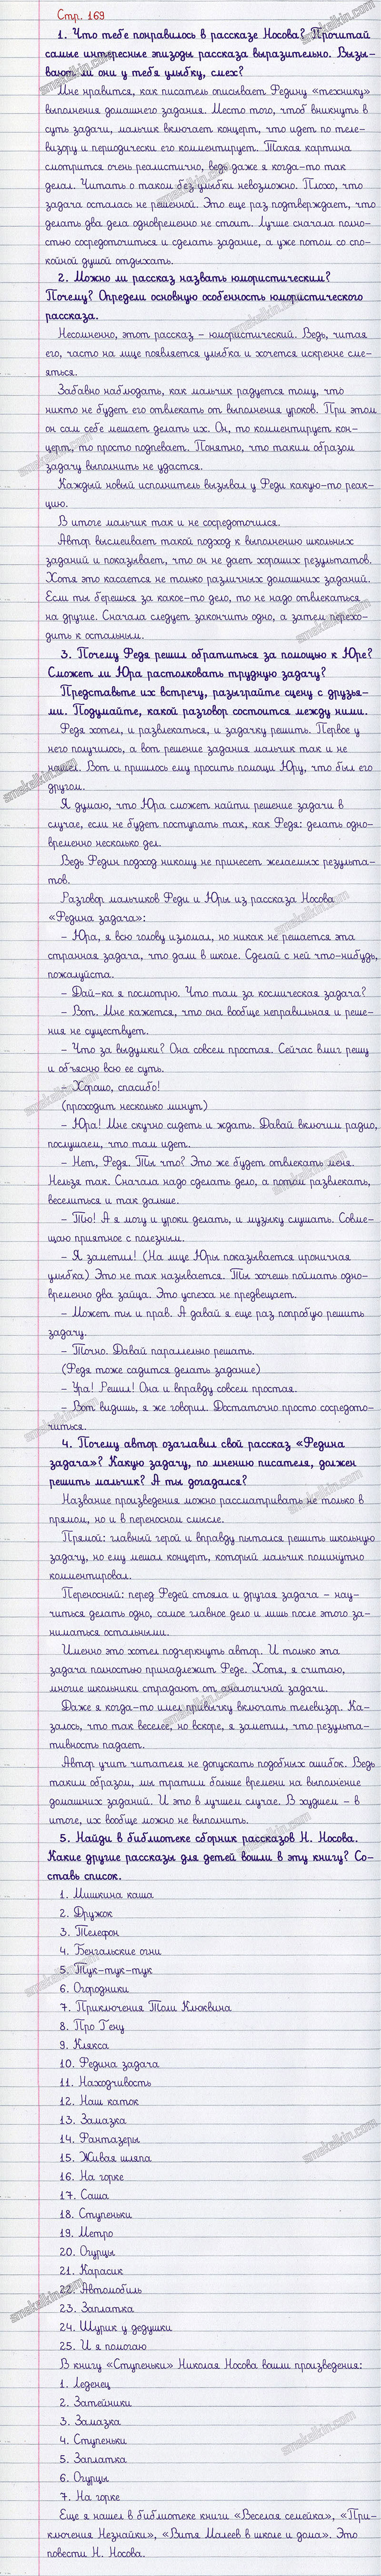 Стр. 169
1. Что тебе понравилось в рассказе Носова? Прочитай
самые интересные эпизоды рассказа выразительно. Вызы-
вают ли они у тебя улыбку, смех?
Мне нравится, как писатель описывает Федину «технику»
выполнения домашнего задания. Место того, чтоб вникнуть в
суть задачи, мальчик включает концерт, что идет по теле-
визору и периодически его комментирует. Такая картина
смотрится очень реалистично, ведь даже я когда-то так
делал. Читать о таком без улыбки невозможно. Плохо, что
задача осталась не решенной. Это еще раз подтверждает, что
делать два дела одновременно не стоит. Лучше сначала полно-
стью сосредоточиться и сделать задание, а уже потом со спо-
койной душой отдыхать.
2. Можно ли рассказ назвать юмористическим?
Почему? Определи основную особенность юмористического
рассказа.
Несомненно, этот рассказ – юмористический. Ведь, читая
его, часто на лице появляется улыбка и хочется искренне сме-
яться.
Забавно наблюдать, как мальчик радуется тому, что
никто не будет его отвлекать от выполнения уроков. При этом
он сам себе мешает делать их. Он, то комментирует кон-
церт, то просто подпевает. Понятно, что таким образом
задачу выполнить не удастся.
Каждый новый исполнитель вызывал у Феди какую-то реак-
цию.
В итоге мальчик так и не сосредоточился.
Автор высмеивает такой подход к выполнению школьных
заданий и показывает, что он не дает хороших результатов.
Хотя это касается не только различных домашних заданий.
Если ты берешься за какое-то дело, то не надо отвлекаться
на другие. Сначала следует закончить одно, а затем перехо-
дить к остальным.
3. Почему Федя решил обратиться за помощью к Юре?
Сможет ли Юра растолковать трудную задачу?
Представьте их встречу, разыграйте сцену с друзья-
ми. Подумайте, какой разговор состоится между ними.
Федя хотел, и развлекаться, и задачку решить. Первое у
него получилось, а вот решение задания мальчик так и не
нашел. Вот и пришлось ему просить помощи Юру, что был его
другом.
Я думаю, что Юра сможет найти решение задачи в
случае, если не будет поступать так, как Федя: делать одно-
временно несколько дел.
Ведь Федин подход никому не принесет желаемых результа-
тов.
Разговор мальчиков Феди и Юры из рассказа Носова
«Федина задача»:
– Юра, я всю голову изломал, но никак не решается эта
странная задача, что дали в школе. Сделай с ней что-нибудь,
пожалуйста.
– Дай-ка я посмотрю. Что там за космическая задача?
– Вот. Мне кажется, что она вообще неправильная и реше-
ния не существует.
– Что за выдумки? Она совсем простая. Сейчас вмиг решу
и объясню всю ее суть.
– Хорошо, спасибо!
(проходит несколько минут)
– Юра! Мне скучно сидеть и ждать. Давай включим радио,
послушаем, что там идет.
– Нет, Федя. Ты что? Это же будет отвлекать меня.
Нельзя так. Сначала надо сделать дело, а потом развлекать,
веселиться и так дальше.
– Тю! А я могу и уроки делать, и музыку слушать. Совме-
щаю приятное с полезным.
– Я заметил! (На лице Юры показывается ироничная
улыбка) Это не так называется. Ты хочешь поймать одно-
временно два зайца. Это успеха не предвещает.
– Может ты и прав. А давай я еще раз попробую решить
задачу.
– Точно. Давай параллельно решать.
(Федя тоже садится делать задание)
– Ура! Решил! Она и вправду совсем простая.
– Вот видишь, я же говорил. Достаточно просто сосредото-
читься.
4. Почему автор озаглавил свой рассказ «Федина
задача»? Какую задачу, по мнению писателя, должен
решить мальчик? А ты догадался?
Название произведения можно рассматривать не только в
прямом, но и в переносном смысле.
Прямой: главный герой и вправду пытался решить школьную
задачу, но ему мешал концерт, который мальчик поминутно
комментировал.
Переносный: перед Федей стояла и другая задача – нау-
читься делать одно, самое главное дело и лишь после этого за-
ниматься остальными.
Именно это хотел подчеркнуть автор. И только эта
задача полностью принадлежит Феде. Хотя, я считаю,
многие школьники страдают от аналогичной задачи.
Даже я когда-то имел привычку включать телевизор. Ка-
залось, что так веселее, но вскоре, я заметил, что результа-
тивность падает.
Автор учит читателя не допускать подобных ошибок. Ведь
таким образом, мы тратим больше времени на выполнение
домашних заданий. И это в лучшем случае. В худшем – в
итоге, их вообще можно не выполнить.
5. Найди в библиотеке сборник рассказов Н. Носова.
Какие другие рассказы для детей вошли в эту книгу? Со-
ставь список.
1. Мишкина каша
2. Дружок
3. Телефон
4. Бенгальские огни
5. Тук-тук-тук
6. Огородники
7. Приключения Толи Клюквина
8. Про Гену
9. Клякса
10. Федина задача
11. Находчивость
12. Наш каток
13. Замазка
14. Фантазеры
15. Живая шляпа
16. На горке
17. Саша
18. Ступеньки
19. Метро
20. Огурцы
21. Карасик
22. Автомобиль
23. Заплатка
24. Шурик у дедушки
25. И я помогаю
В книгу «Ступеньки» Николая Носова вошли произведения:
1. Леденец
2. Затейники
3. Замазка
4. Ступеньки
5. Заплатка
6. Огурцы
7. На горке
Еще я нашел в библиотеке книги «Веселая семейка», «При-
ключения Незнайки», «Витя Малеев в школе и дома». Это
повести Н. Носова.